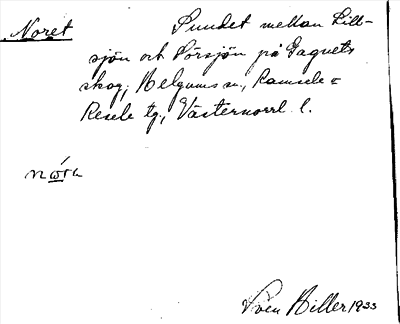 Noret Sundet mellan Lill-
sjön och Sörsjön på Gagnets
skog, Helgums sn, Ramsele o
Resele tg, Västernorrl. l.
Sven Hiller 1933